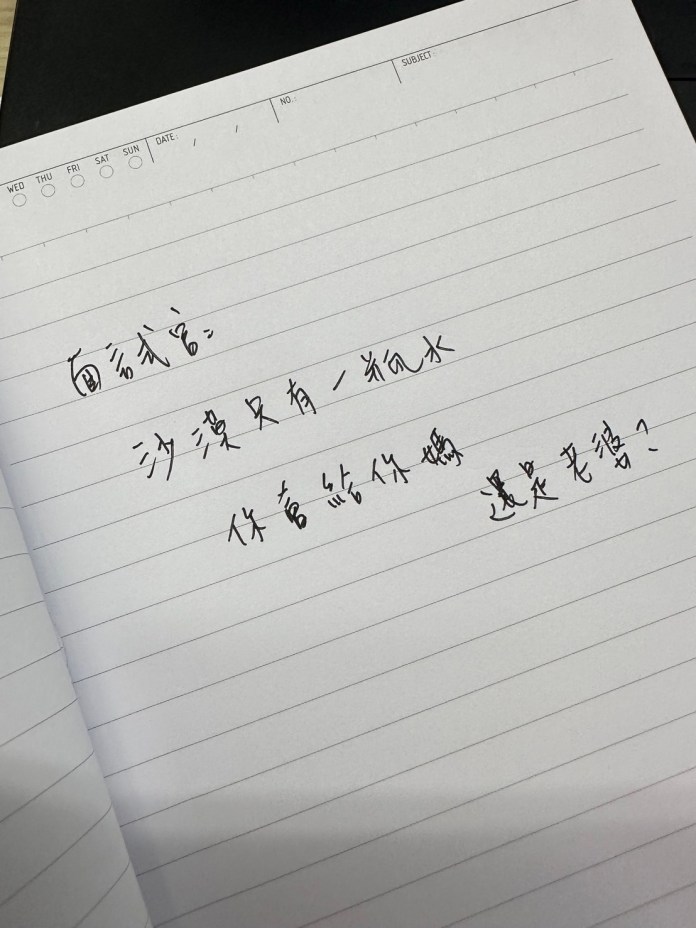 WED THU FRI SAT SUN DATE: / / NO.: SUBJECT
面試官:
沙漠只有一瓶水
你會給你媽
還是老婆?